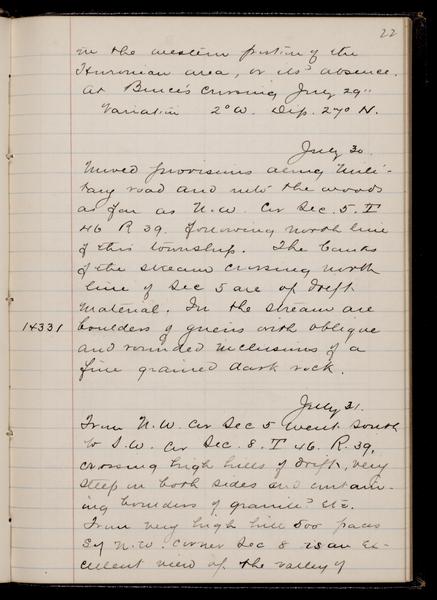 22
in the western portion of the
Huronian area, or its absence.
At Bruce's Crossing July 29"
Variation 2° W. Dip. 270 N.
July 30.
Moved provisions along Mili-
tary road and into the woods
as far as N.W. Cor Sec. 5. T
46 R 39. following north line
of this township. The banks
of the stream crossing north
line of Sec 5 are of drift
material. In the stream are
14331 boulders of gneiss with oblique
and rounded inclusions of a
fine grained dark rock.
July 31.
From N.W. Cor Sec 5 went south
to S.W. Cor Sec. 8. T 46. R. 39,
crossing high hills of drift, very
steep on both sides and contain-
ing boulders of granite etc.
From very high hill 500 paces
S of N.W. corner Sec 8 is an ex-
cellent view of the valley of